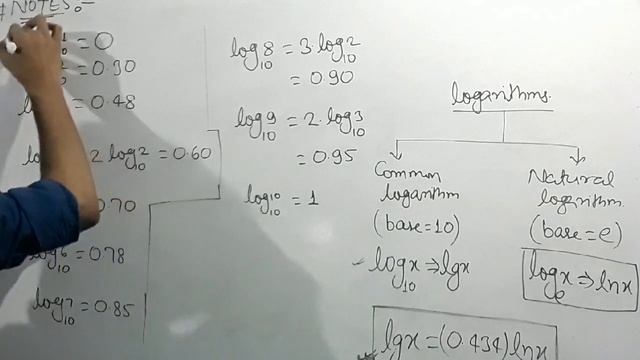 # NOTES:-
= 0
10 = 0.30
lo = 0.48
log 2 log₁₀2 = 0.60
0.70
log₁₀6 = 0.78
log₁₀7 = 0.85
log₁₀8 = 3·log₁₀2
= 0.90
log₁₀9 = 2·log₁₀3
= 0.95
log₁₀10 = 1
logarithms
Common
logarithm
(base=10)
log₁₀x ⇒ lgx
Natural
logarithm
(base=e)
logₑx ⇒ lnx
lgx = (0.434) lnx